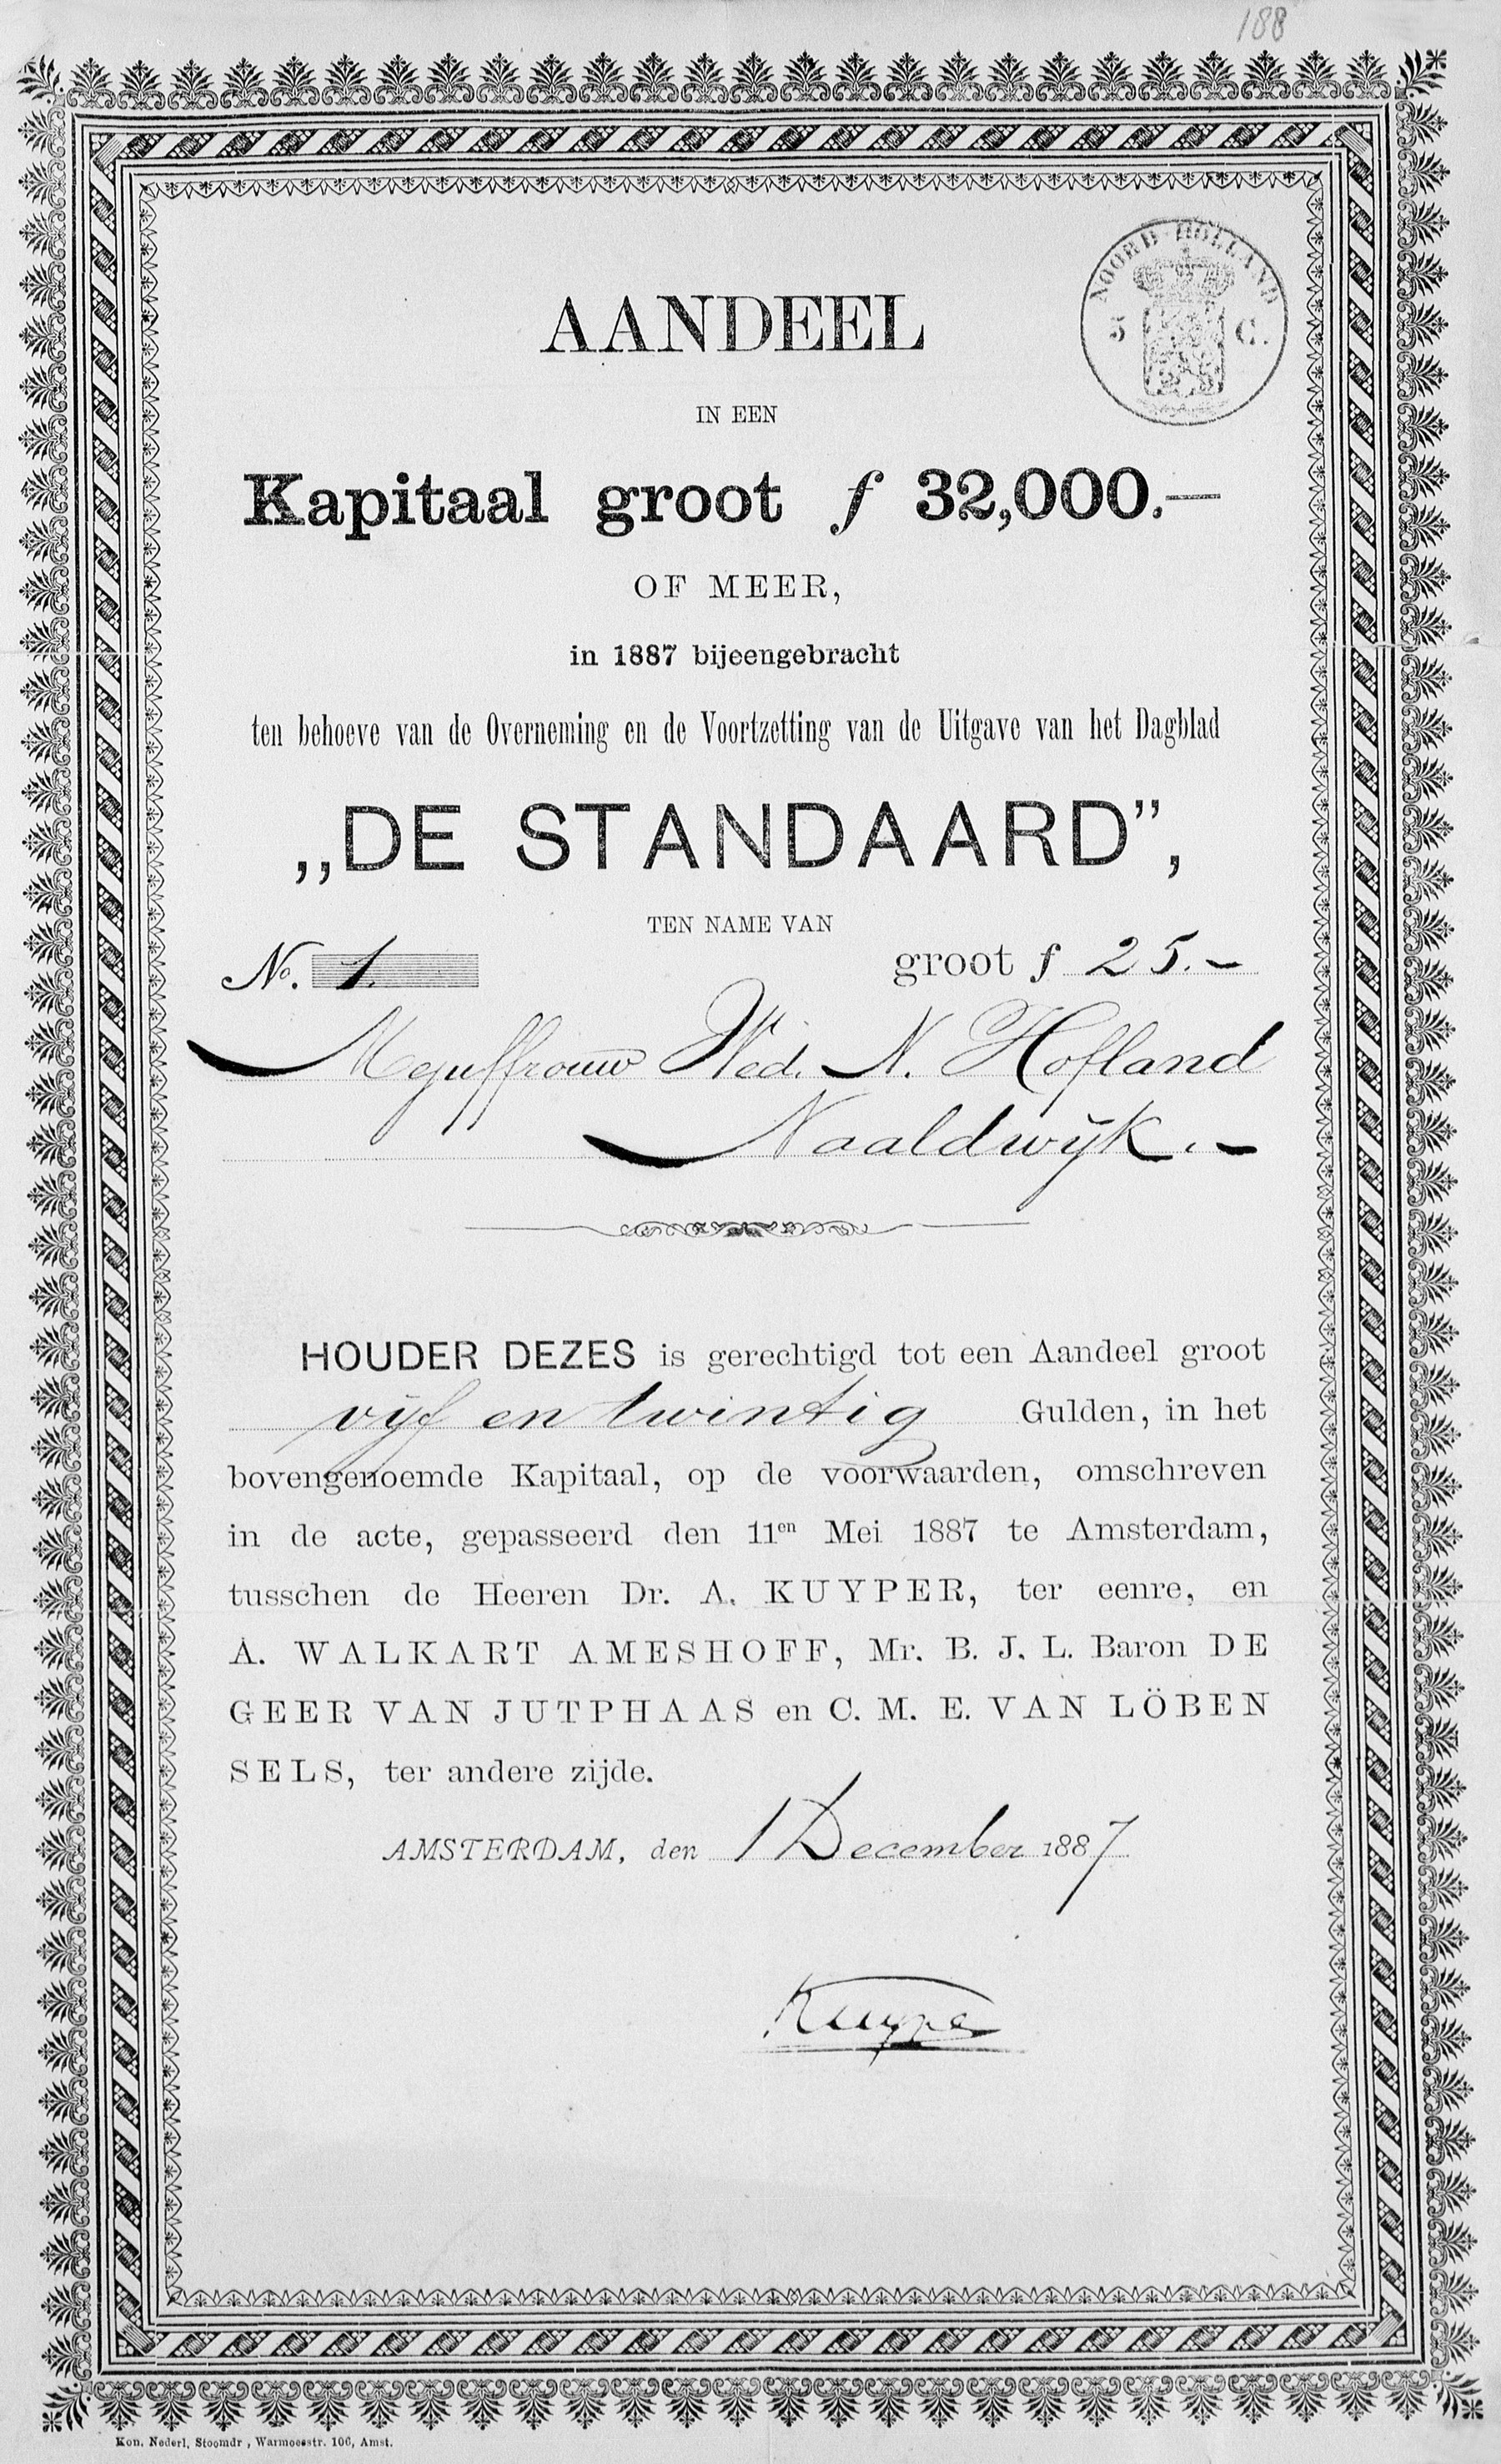 188
NOORD-HOLLAND
5 C.
AANDEEL
IN EEN
Kapitaal groot ƒ 32,000.—
OF MEER,
in 1887 bijeengebracht
ten behoeve van de Overneming en de Voortzetting van de Uitgave van het Dagblad
„DE STANDAARD”,
TEN NAME VAN
No. 1. groot ƒ 25.-
Mejuffrouw Wed. N. Hofland
Naaldwijk.-
HOUDER DEZES is gerechtigd tot een Aandeel groot
vijf en twintig Gulden, in het
bovengenoemde Kapitaal, op de voorwaarden, omschreven
in de acte, gepasseerd den 11en Mei 1887 te Amsterdam,
tusschen de Heeren Dr. A. KUYPER, ter eenre, en
A. WALKART AMESHOFF, Mr. B. J. L. Baron DE
GEER VAN JUTPHAAS en C. M. E. VAN LÖBEN
SELS, ter andere zijde.
AMSTERDAM, den 1 December 1887
Kuyper
Kon. Nederl. Stoomdr., Warmoesstr. 106, Amst.